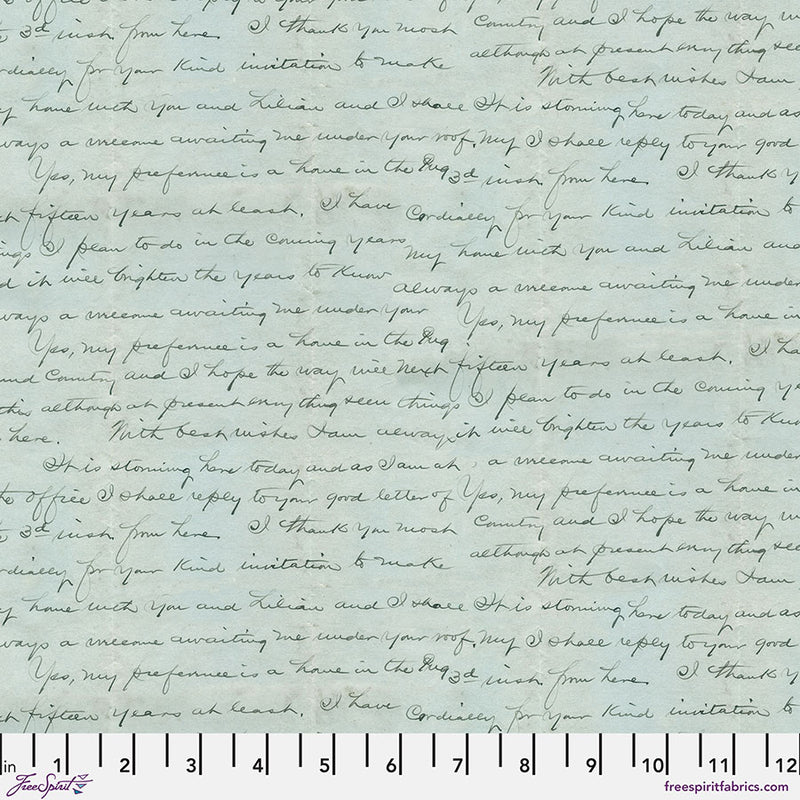 3d inst. from here. I thank you most Country and I hope the way
although at present everything seem
cordially for your kind invitation to make With best wishes I am
my home with you and Lilian and I shall It is storming here today and as
always a welcome awaiting me under your roof. My I shall reply to your good
Yes, my preference is a home in the 3d inst. from here. I thank
next fifteen years at least. I have Cordially for your kind invitation to
things I plan to do in the coming years my home with you and Lilian and
and it will brighten the years to know always a welcome awaiting me under
always a welcome awaiting me under your Yes, my preference is a home in
Yes, my preference is a home in the
and Country and I hope the way will next fifteen years at least. I have
this although at present everything seem things I plan to do in the coming
here. With best wishes I am always it will brighten the years to know
It is storming here today and as I am at a welcome awaiting me under
the office I shall reply to your good letter of Yes, my preference is a home in
3d inst. from here. I thank you most Country and I hope the way
although at present everything seem
cordially for your kind invitation to make With best wishes I am
my home with you and Lilian and I shall It is storming here today and as
always a welcome awaiting me under your roof. My I shall reply to your good
Yes, my preference is a home in the 3d inst. from here. I thank
next fifteen years at least. I have Cordially for your kind invitation to
in 1 2 3 4 5 6 7 8 9 10 11 12
FreeSpirit freespiritfabrics.com